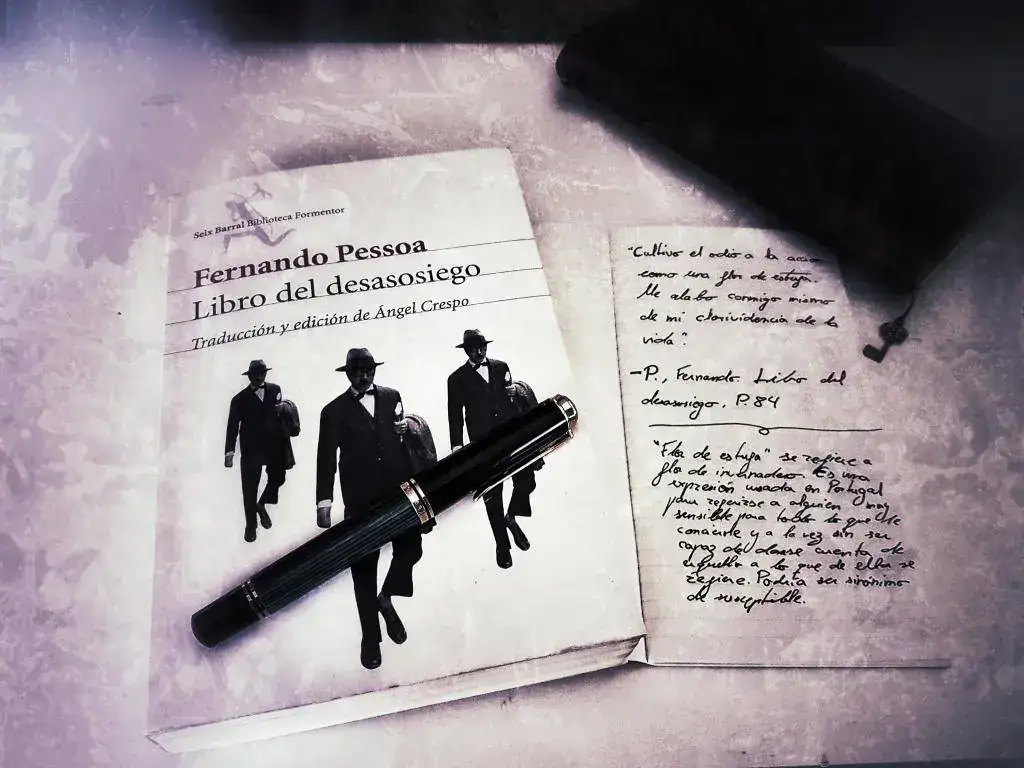 Seix Barral Biblioteca Formentor
Fernando Pessoa
Libro del desasosiego
Traducción y edición de Ángel Crespo
"Cultivo el odio a la acción
como una flor de estufa.
Me alabo conmigo mismo
de mi clarividencia de la
vida".
-P., Fernando. Libro del
desasosiego. P. 84
"Flor de estufa" se refiere a
flor de invernadero. Es una
expresión usada en Portugal
para referirse a alguien muy
sensible para todo lo que le
concierne y a la vez sin ser
capaz de darse cuenta de
aquello a lo que de ella se
refiere. Podría ser sinónimo
de susceptible.